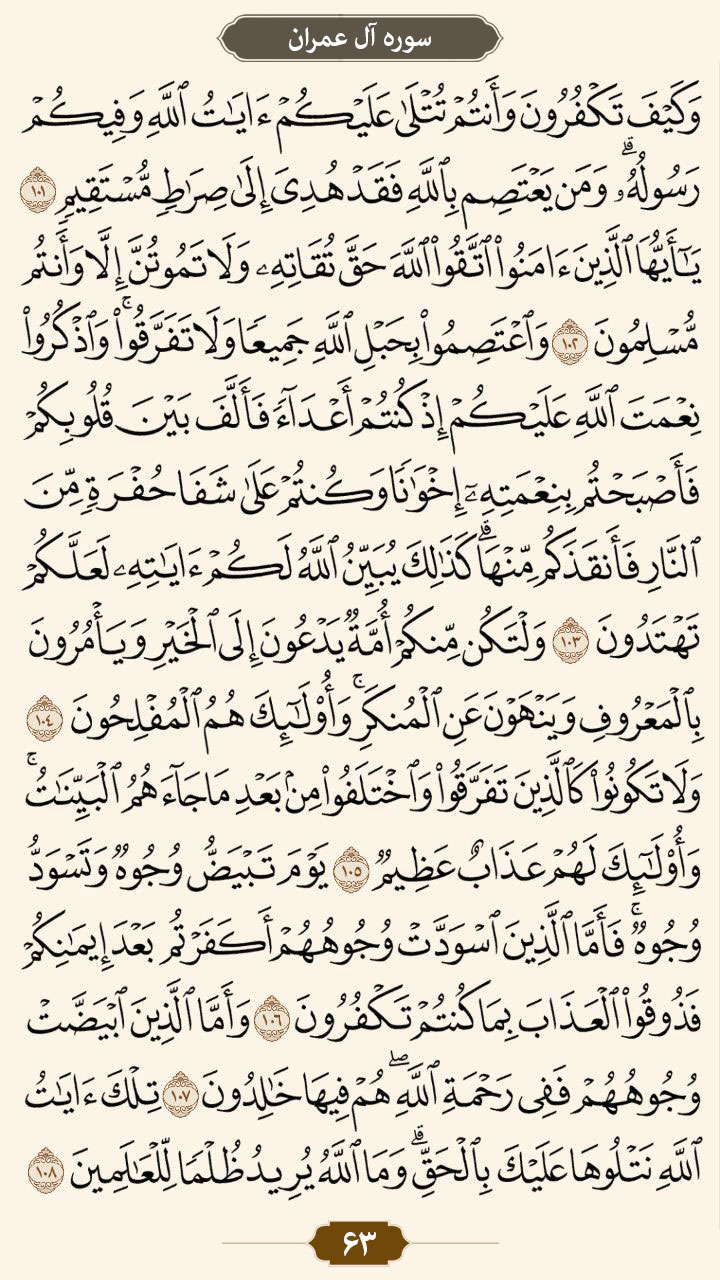 سوره آل عمران
وَكَيْفَ تَكْفُرُونَ وَأَنتُمْ تُتْلَىٰ عَلَيْكُمْ ءَايَٰتُ ٱللَّهِ وَفِيكُمْ
رَسُولُهُۥ ۗ وَمَن يَعْتَصِم بِٱللَّهِ فَقَدْ هُدِىَ إِلَىٰ صِرَٰطٍ مُّسْتَقِيمٍ ١٠١
يَٰٓأَيُّهَا ٱلَّذِينَ ءَامَنُوا۟ ٱتَّقُوا۟ ٱللَّهَ حَقَّ تُقَاتِهِۦ وَلَا تَمُوتُنَّ إِلَّا وَأَنتُم
مُّسْلِمُونَ ١٠٢ وَٱعْتَصِمُوا۟ بِحَبْلِ ٱللَّهِ جَمِيعًا وَلَا تَفَرَّقُوا۟ ۚ وَٱذْكُرُوا۟
نِعْمَتَ ٱللَّهِ عَلَيْكُمْ إِذْ كُنتُمْ أَعْدَآءً فَأَلَّفَ بَيْنَ قُلُوبِكُمْ
فَأَصْبَحْتُم بِنِعْمَتِهِۦٓ إِخْوَٰنًا وَكُنتُمْ عَلَىٰ شَفَا حُفْرَةٍ مِّنَ
ٱلنَّارِ فَأَنقَذَكُم مِّنْهَا ۗ كَذَٰلِكَ يُبَيِّنُ ٱللَّهُ لَكُمْ ءَايَٰتِهِۦ لَعَلَّكُمْ
تَهْتَدُونَ ١٠٣ وَلْتَكُن مِّنكُمْ أُمَّةٌ يَدْعُونَ إِلَى ٱلْخَيْرِ وَيَأْمُرُونَ
بِٱلْمَعْرُوفِ وَيَنْهَوْنَ عَنِ ٱلْمُنكَرِ ۚ وَأُو۟لَٰٓئِكَ هُمُ ٱلْمُفْلِحُونَ ١٠٤
وَلَا تَكُونُوا۟ كَٱلَّذِينَ تَفَرَّقُوا۟ وَٱخْتَلَفُوا۟ مِنۢ بَعْدِ مَا جَآءَهُمُ ٱلْبَيِّنَٰتُ ۚ
وَأُو۟لَٰٓئِكَ لَهُمْ عَذَابٌ عَظِيمٌ ١٠٥ يَوْمَ تَبْيَضُّ وُجُوهٌ وَتَسْوَدُّ
وُجُوهٌ ۚ فَأَمَّا ٱلَّذِينَ ٱسْوَدَّتْ وُجُوهُهُمْ أَكَفَرْتُم بَعْدَ إِيمَٰنِكُمْ
فَذُوقُوا۟ ٱلْعَذَابَ بِمَا كُنتُمْ تَكْفُرُونَ ١٠٦ وَأَمَّا ٱلَّذِينَ ٱبْيَضَّتْ
وُجُوهُهُمْ فَفِى رَحْمَةِ ٱللَّهِ ۖ هُمْ فِيهَا خَٰلِدُونَ ١٠٧ تِلْكَ ءَايَٰتُ
ٱللَّهِ نَتْلُوهَا عَلَيْكَ بِٱلْحَقِّ ۗ وَمَا ٱللَّهُ يُرِيدُ ظُلْمًا لِّلْعَٰلَمِينَ ١٠٨
۶۳